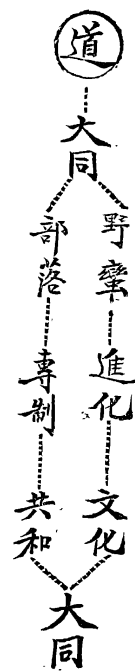 道
大同
野蠻
進化
文化
部落
專制
共和
大同